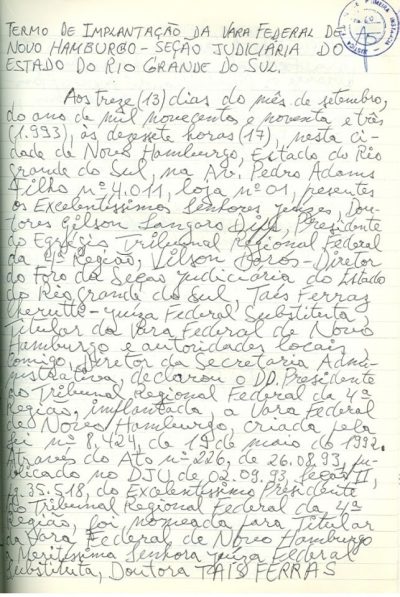 TERMO DE IMPLANTAÇÃO DA VARA FEDERAL DE
NOVO HAMBURGO - SEÇÃO JUDICIÁRIA DO
ESTADO DO RIO GRANDE DO SUL.
Aos treze (13) dias do mês de setembro,
do ano de mil novecentos e noventa e três
(1.993), às dezessete horas (17), nesta ci-
dade de Novo Hamburgo, Estado do Rio
Grande do Sul, na Av. Pedro Adams
Filho nº 4.011, loja nº 01, presentes
os Excelentíssimos Senhores Juízes, Dou-
tores Gilson Langaro Dipp, Presidente
do Egrégio Tribunal Regional Federal
da 4ª Região, Vilson Darós - Diretor
do Foro da Seção Judiciária do Estado
do Rio Grande do Sul, Taís Ferraz
- Juíza Federal Substituta,
Titular da Vara Federal de Novo
Hamburgo e autoridades locais,
comigo, Diretor da Secretaria Admi-
nistrativa, declarou o DD. Presidente
do Tribunal Regional Federal da 4ª
Região, implantada a Vara Federal
de Novo Hamburgo, criada pela
Lei nº 8.424, de 19 de maio de 1992.
Através do Ato nº 226, de 26.08.93, pu-
blicado no DJU de 02.09.93, Seção II,
p. 35.518, do Excelentíssimo Presidente
do Tribunal Regional Federal da 4ª
Região, foi nomeada para Titular
da Vara Federal de Novo Hamburgo
a Meritíssima Senhora Juíza Federal
Substituta, Doutora TAÍS FERRAS